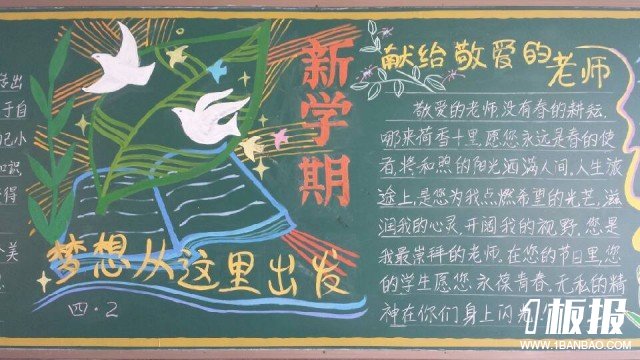 出
于自
己小
知识
得
美
新学期
梦想从这里出发
四·2
献给敬爱的老师
敬爱的老师,没有春的耕耘,
哪来荷雪十里,愿您永远是春的使
者,将和煦的阳光洒满人间,人生旅
途上,是您为我点燃希望的光芒,滋
润我的心灵,开阔我的视野,您是
我最崇拜的老师,在您的节日里,您
的学生愿您,永葆青春,无私的精
神在你们身上闪
板报
WWW.1BANBAO.COM